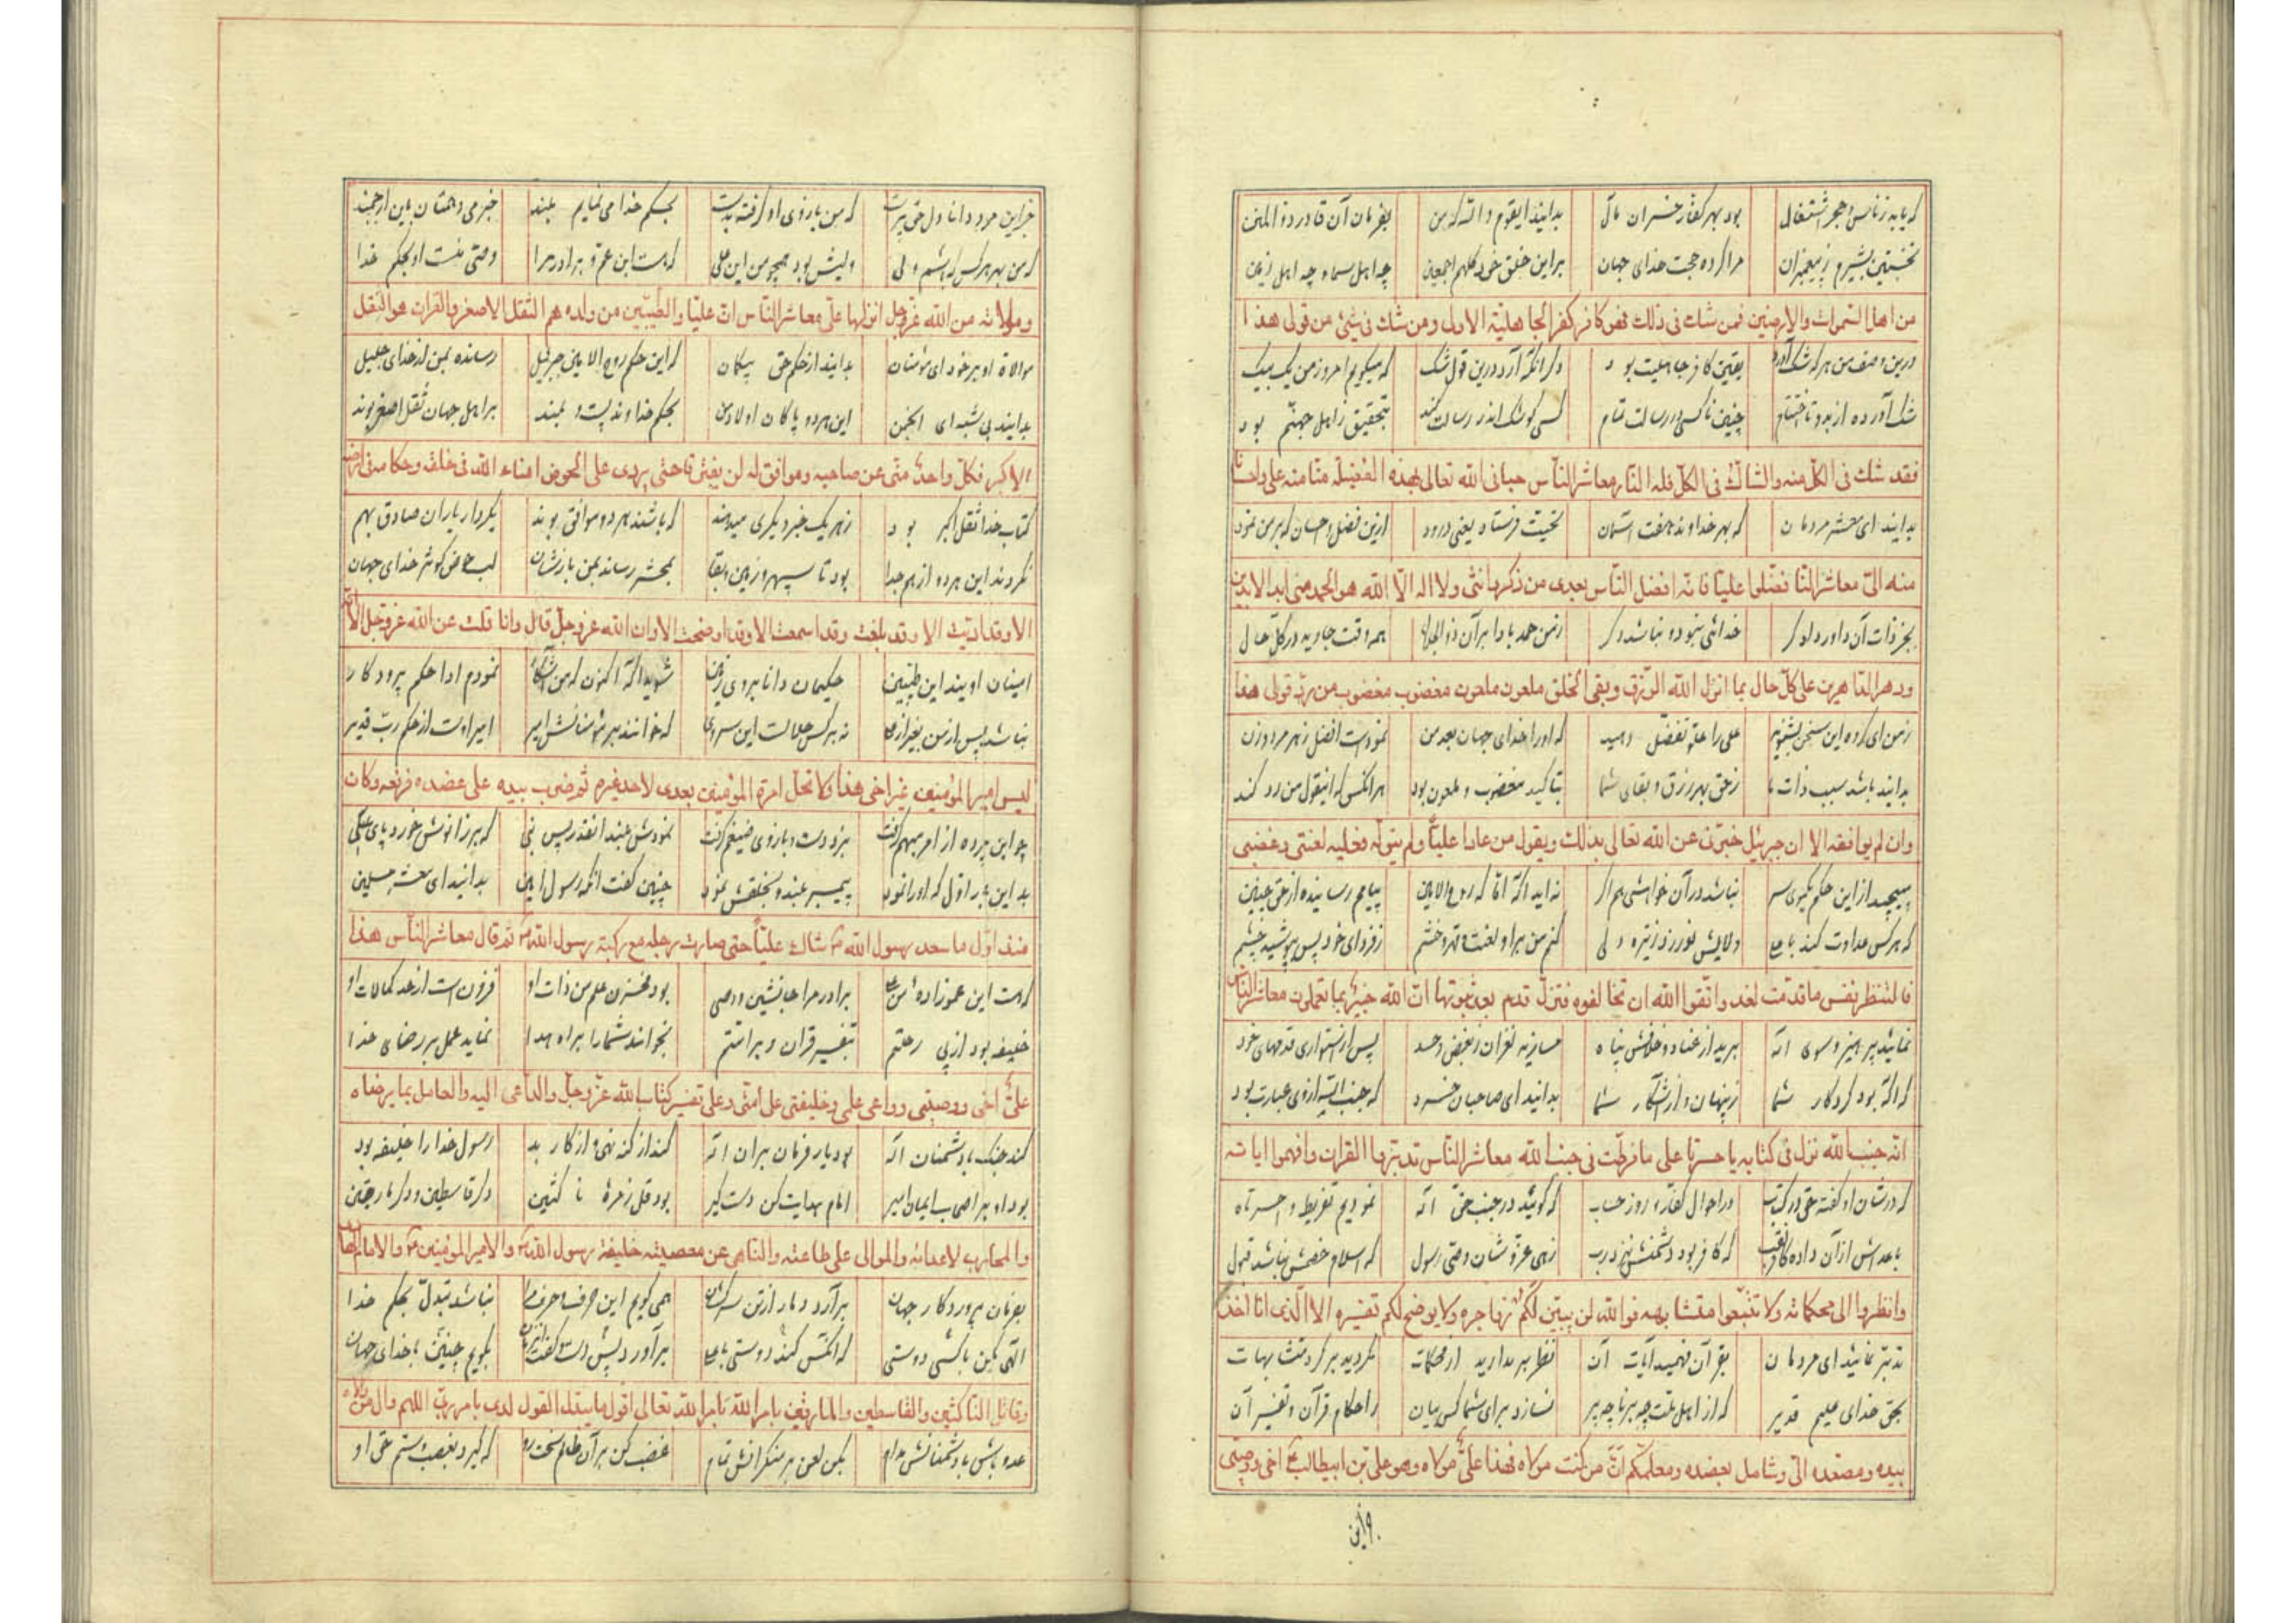 که یابد ز ناس و حجر اشتعال بود بهر کفار خسران مآل بدانید ایقوم والله که من بفرمان آن قادر ذوالمنن
نخستین بشیرم ز پیغمبران مرا کرده حجت خدای جهان براین خلق خود کلهم اجمعین چه اهل سما و چه اهل زمین
من اهل السموات والارضین فمن شك فی ذلك فهو کافر کفر الجاهلیة الاولی ومن شك فی شئ من قولی هذا
درین وصف من هر که شک آورد یقین کافر جاهلیت بود دگر آنکه آرد درین قول شک که میگویم امروز من یک بیک
شک آورده از بدو تا اختتام چنین ناکسی در رسالت تمام کسی کو شک اندر رسالت کند بتحقیق ز اهل جهنم بود
فقد شك فی الکل منه والشاك فی الکل فله النار معاشر الناس حبانی الله تعالی بهذه الفضیلة منا منه علی واحسانا
بدانید ای معشر مردمان که بهر خداوند هفت آسمان تحیت فرستاد یعنی درود ازین فضل و احسان که بر من نمود
منه الی معاشر الناس فضلوا علیا فانه افضل الناس بعدی من ذکر وانثی ولا اله الا الله هو الحمد منی ابد الابدین
بجز ذات آن داور دادگر خدائی نبود و نباشد دگر ز من حمد بادا بر آن ذوالجلال همه وقت جاوید در کل حال
ودهر الداهرین علی کل حال بما انزل الله الرزق وبقی الخلق ملعون ملعون مغضوب مغضوب من رد قولی هذا
ز من ای گروه این سخن بشنوید علی را علو تفضل دهید که او را خدای جهان بعد من نمودست افضل ز هر مرد و زن
بدانید باشد سبب ذات ما ز حق بهر رزق و بقای شما بتاکید مغضوب و ملعون بود هر آنکس که اینقول من رد کند
وان لم یوافقه الا ان جبرئیل خبرنی عن الله تعالی بذلك ویقول من عادا علیا ولم یتوله فعلیه لعنتی وغضبی
مپیچید از این حکم نیکوی سر نباشد در آن خواهشی هم اگر پیامم رسانیده از حق چنین
که هر کس عداوت کند با علی ولایش نورزد کنم من برا و لعنت و قهر و خشم ز فردای خود پس بپوشید چشم
فالتنظر نفس ما قدمت لغد واتقوا الله ان تخالفوه فتزل قدم بعد ثبوتها ان الله خبیر بما تعملون معاشر الناس
نمائید پرهیز و سوی اله برید از عناد و خلافش پناه پس از استواری قدمهای خود
که آگه بود کردگار شما ز پنهان و از آشکار شما بدانید ای صاحبان خرد که جنب الله از وی عبارت بود
انه جنب الله نزل فی کتابه یا حسرتا علی ما فرطت فی جنب الله معاشر الناس تدبروا القران وافهموا ایاته
که در شان او گفته حق در کتاب در احوال کفار روز حساب که گویند در جنب حق اله نمودیم تفریط وا حسرتاه
که کافر بود دشمنش نزد رب زهی عز و شان وصی رسول که اسلام خصمش نباشد قبول
وانظروا الی محکماته ولا تتبعوا متشابهه فوالله لن یبین لکم زواجره ولا یوضح لکم تفسیره الا الذی انا اخذ
تدبر نمائید ای مردمان بقرآن فهمید آیات آن نظر بر بدارید از محکمات نگردید بر گرد متشابهات
بحق خدای علیم قدیر که از اهل ملت چه برنا چه پیر نسازد برای شما کس بیان ز احکام قرآن و تفسیر آن
بیده ومصعده الی وشامل بعضده ومعلمکم ان من کنت مولاه فهذا علی مولاه وهو علی بن ابیطالب اخی ووصیی
جز این مرد دانا دل حق پرست که من بازوی او گرفته بدست بحکم خدا می نمایم بلند خبر می دهمتان باین ارجمند
که من بهر هر کس که باشم ولی ولیش بود همچو من این علی که هست ابن عم و برادر مرا وصی منست او بحکم خدا
وموالاته من الله عز وجل انزلها علی معاشر الناس ان علیا والطیبین من ولده هم الثقل الاصغر والقران هو الثقل
موالاة او بر خود ای مؤمنان بدانید از حکم حق بیگمان که این حکم روح الامین جبرئیل رسانده بمن از خدای جلیل
بدانید بی شبه ای انجمن این هر دو پاکان اولاد من بحکم خداوند پست و بلند بر اهل جهان ثقل اصغر بوند
الاکبر فکل واحد منبئ عن صاحبه وموافق له لن یفترقا حتی یردی علی الحوض امناء الله فی خلقه وحکامه فی ارضه
کتاب خدا ثقل اکبر بود ز هر یک خبر دیگری میدهد که باشند هر دو موافق بوند بکردار یاران صادق بهم
نگردند این هر دو از هم جدا بود تا سپهر و زمین و بقا بمحشر رساند بمن بازشان لب حوض کوثر خدای جهان
الا وقد ادیت الا وقد بلغت وقد اسمعت الا وقد اوضحت الا وان الله عز وجل قال وانا قلت عن الله عز وجل الا انه
امینان اویند این طیبین حکیمان دانا بروی زمین شوید آگه اکنون که من آشکار نمودم ادا حکم پروردگار
نباشد پس از من بغیر از علی نه بر کس حلالست این سروری که خوانند بر مؤمنانش امیر امیر اوست از حکم رب قدیر
لیس امیر المؤمنین غیر اخی هذا ولا تحل امرة المؤمنین بعدی لاحد غیره ثم ضرب بیده علی عضده فرفعه وکان
بزد دست و بازوی ضیغم گرفت نمودش بلند آنقدر پس نبی که بر زانوش خورد پای علی
بد این بار اول که او را نمود پیمبر بلند و بخلقش نمود چنین گفت آنگه رسول امین بدانید ای معشر مسلمین
منذ اول ما سعد رسول الله شال علیا حتی صارت رجله مع رکبة رسول الله ثم قال معاشر الناس هذا
که هست این عموزاده من علی برادر مرا جانشین و وصی بود مخزن علم من ذات او فزون است از حد کمالات او
خلیفه بود از پی رحلتم بتفسیر قرآن و بر امتم بخواند شما را براه هدا نماید عمل بر رضای خدا
علی اخی ووصیی وواعی علمی وخلیفتی علی امتی وعلی تفسیر کتاب الله عز وجل والداعی الیه والعامل بما یرضاه
کند جنگ با دشمنان اله بود یار فرمان بران اله کند از گنه نهی و از کار بد رسول خدا را خلیفه بود
بود او بر اصحاب ایمان امیر امام هدایت کن دستگیر بود قتل زمره ناکثین دگر قاسطین و دگر مارقین
والمحارب لاعدائه والموالی علی طاعته والناهی عن معصیته خلیفة رسول الله والامیر المؤمنین والامام الهادی
بفرمان پروردگار جهان برآرد دمار از تن سرکشان همی گویم این حرف نباشد تبدل بحکم خدا
الهی بکن با کسی دوستی که آنکس کند دوستی با علی برآورد پس دست بگویم چنین با خدای جهان
وقاتل الناکثین والقاسطین والمارقین بامر الله بامر الله تعالی اقول ما یبدل القول لدی بامر رب اللهم وال من والاه
عدو باش با دشمنانش مدام بکن لعن بر منکرانش تمام غضب کن بر آن ظالم سخت رو که گیرد بغصب و ستم حق او